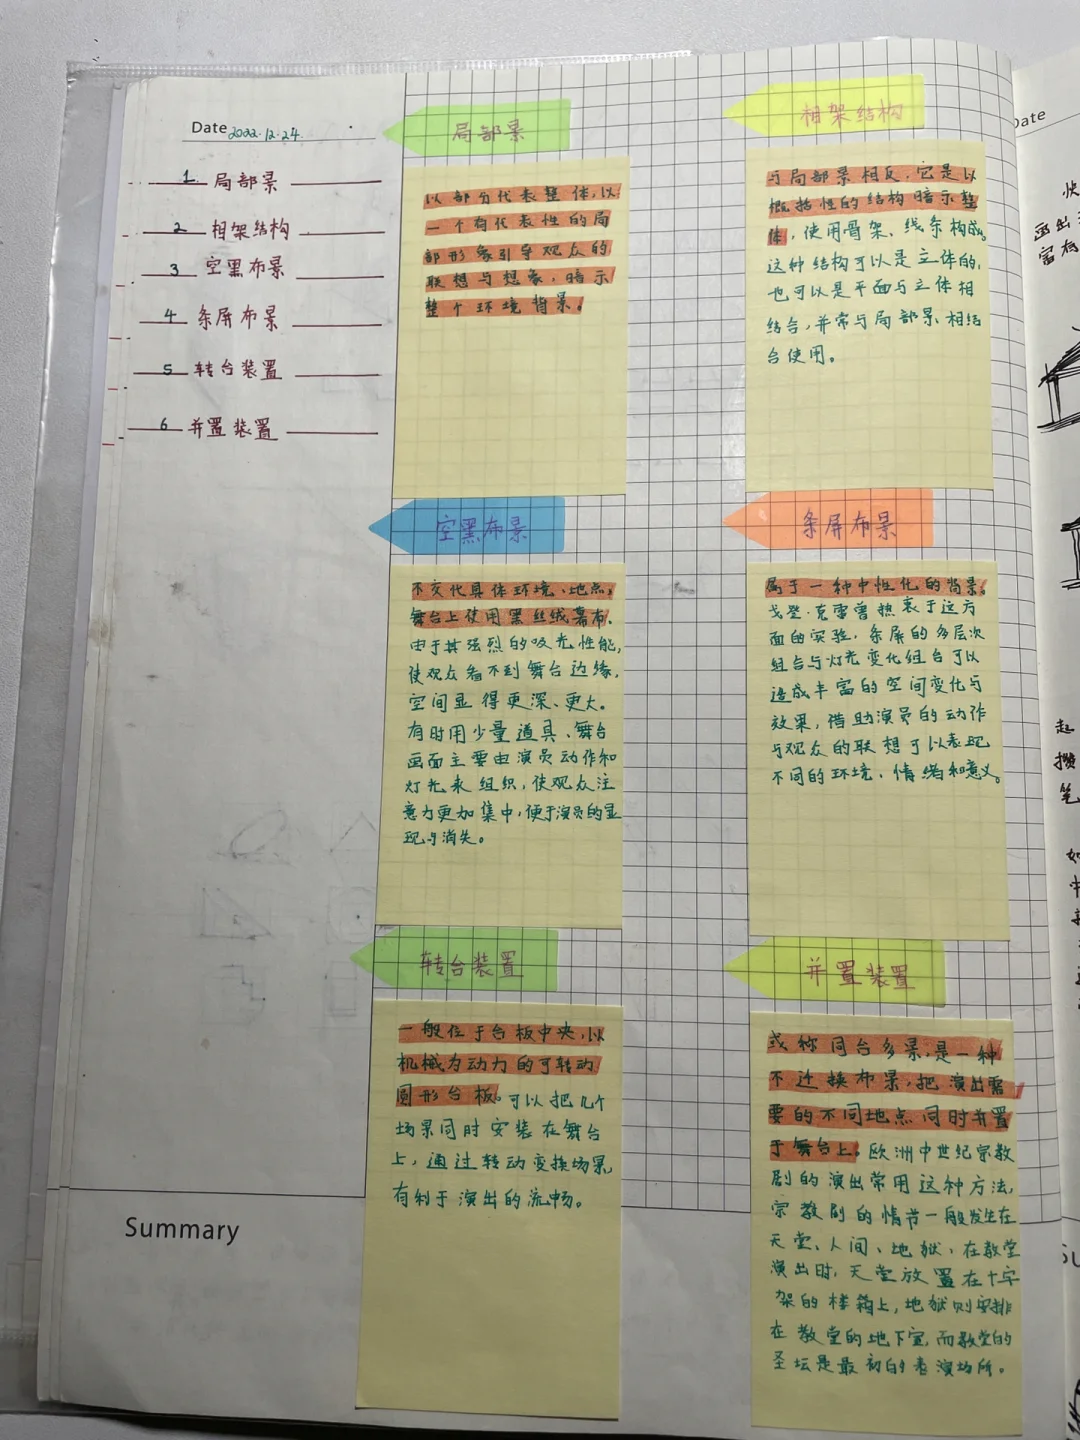 Date 2022.12.24.
1. 局部景
2 相架结构
3 空黑布景
4 条屏布景
5 转台装置
6 并置装置
局部景
以部分代表整体,以
一个有代表性的局
部形象引导观众的
联想与想象,暗示
整个环境背景。
相架结构
与局部景相反,它是以
概括性的结构暗示整
体,使用骨架、线条构成。
这种结构可以是立体的,
也可以是平面与立体相
结合,并常与局部景相结
合使用。
空黑布景
不交代具体环境、地点,
舞台上使用黑丝绒幕布.
由于其强烈的吸光性能,
使观众看不到舞台边缘,
空间显得更深、更大。
有时用少量道具、舞台
画面主要由演员动作和
灯光来组织,使观众注
意力更加集中,便于演员的显
现与消失。
条屏布景
属于一种中性化的背景。
戈登·克雷曾热衷于这方
面的实验,条屏的多层次
组合与灯光变化组合可以
造成丰富的空间变化与
效果,借助演员的动作
与观众的联想可以表现
不同的环境、情绪和意义。
转台装置
一般位于台板中央,以
机械为动力的可转动
圆形台板。可以把几个
场景同时安装在舞台
上,通过转动变换场景,
有利于演出的流畅。
并置装置
或称同台多景,是一种
不迁换布景,把演出需
要的不同地点同时并置
于舞台上。欧洲中世纪宗教
剧的演出常用这种方法,
宗教剧的情节一般发生在
天堂、人间、地狱,在教堂
演出时,天堂放置在十字
架的楼箱上,地狱则安排
在教堂的地下室,而教堂的
圣坛是最初的表演场所。
Summary
Date
快
画出
富有
起
攒
笔
如